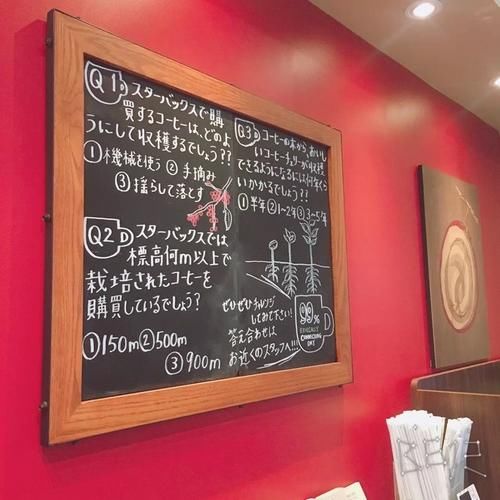 Q1 スターバックスで購
買するコーヒーは、どのよ
うにして収穫するでしょう??
①機械を使う ②手摘み
③揺らして落とす
Q2 スターバックスでは
標高何m以上で
栽培されたコーヒーを
購買しているでしょう?
①150m②500m
③900m
Q3 コーヒーの木から、おいし
いコーヒーチェリーが収穫
できるようになるには何年くら
いかかるでしょう??
①半年②1~2年③3~5年
ぜひぜひチャレンジ
してみて下さい!
答え合わせは
お近くのスタッフへ!!!
99%
ETHICALLY
CONNECTING
DAY